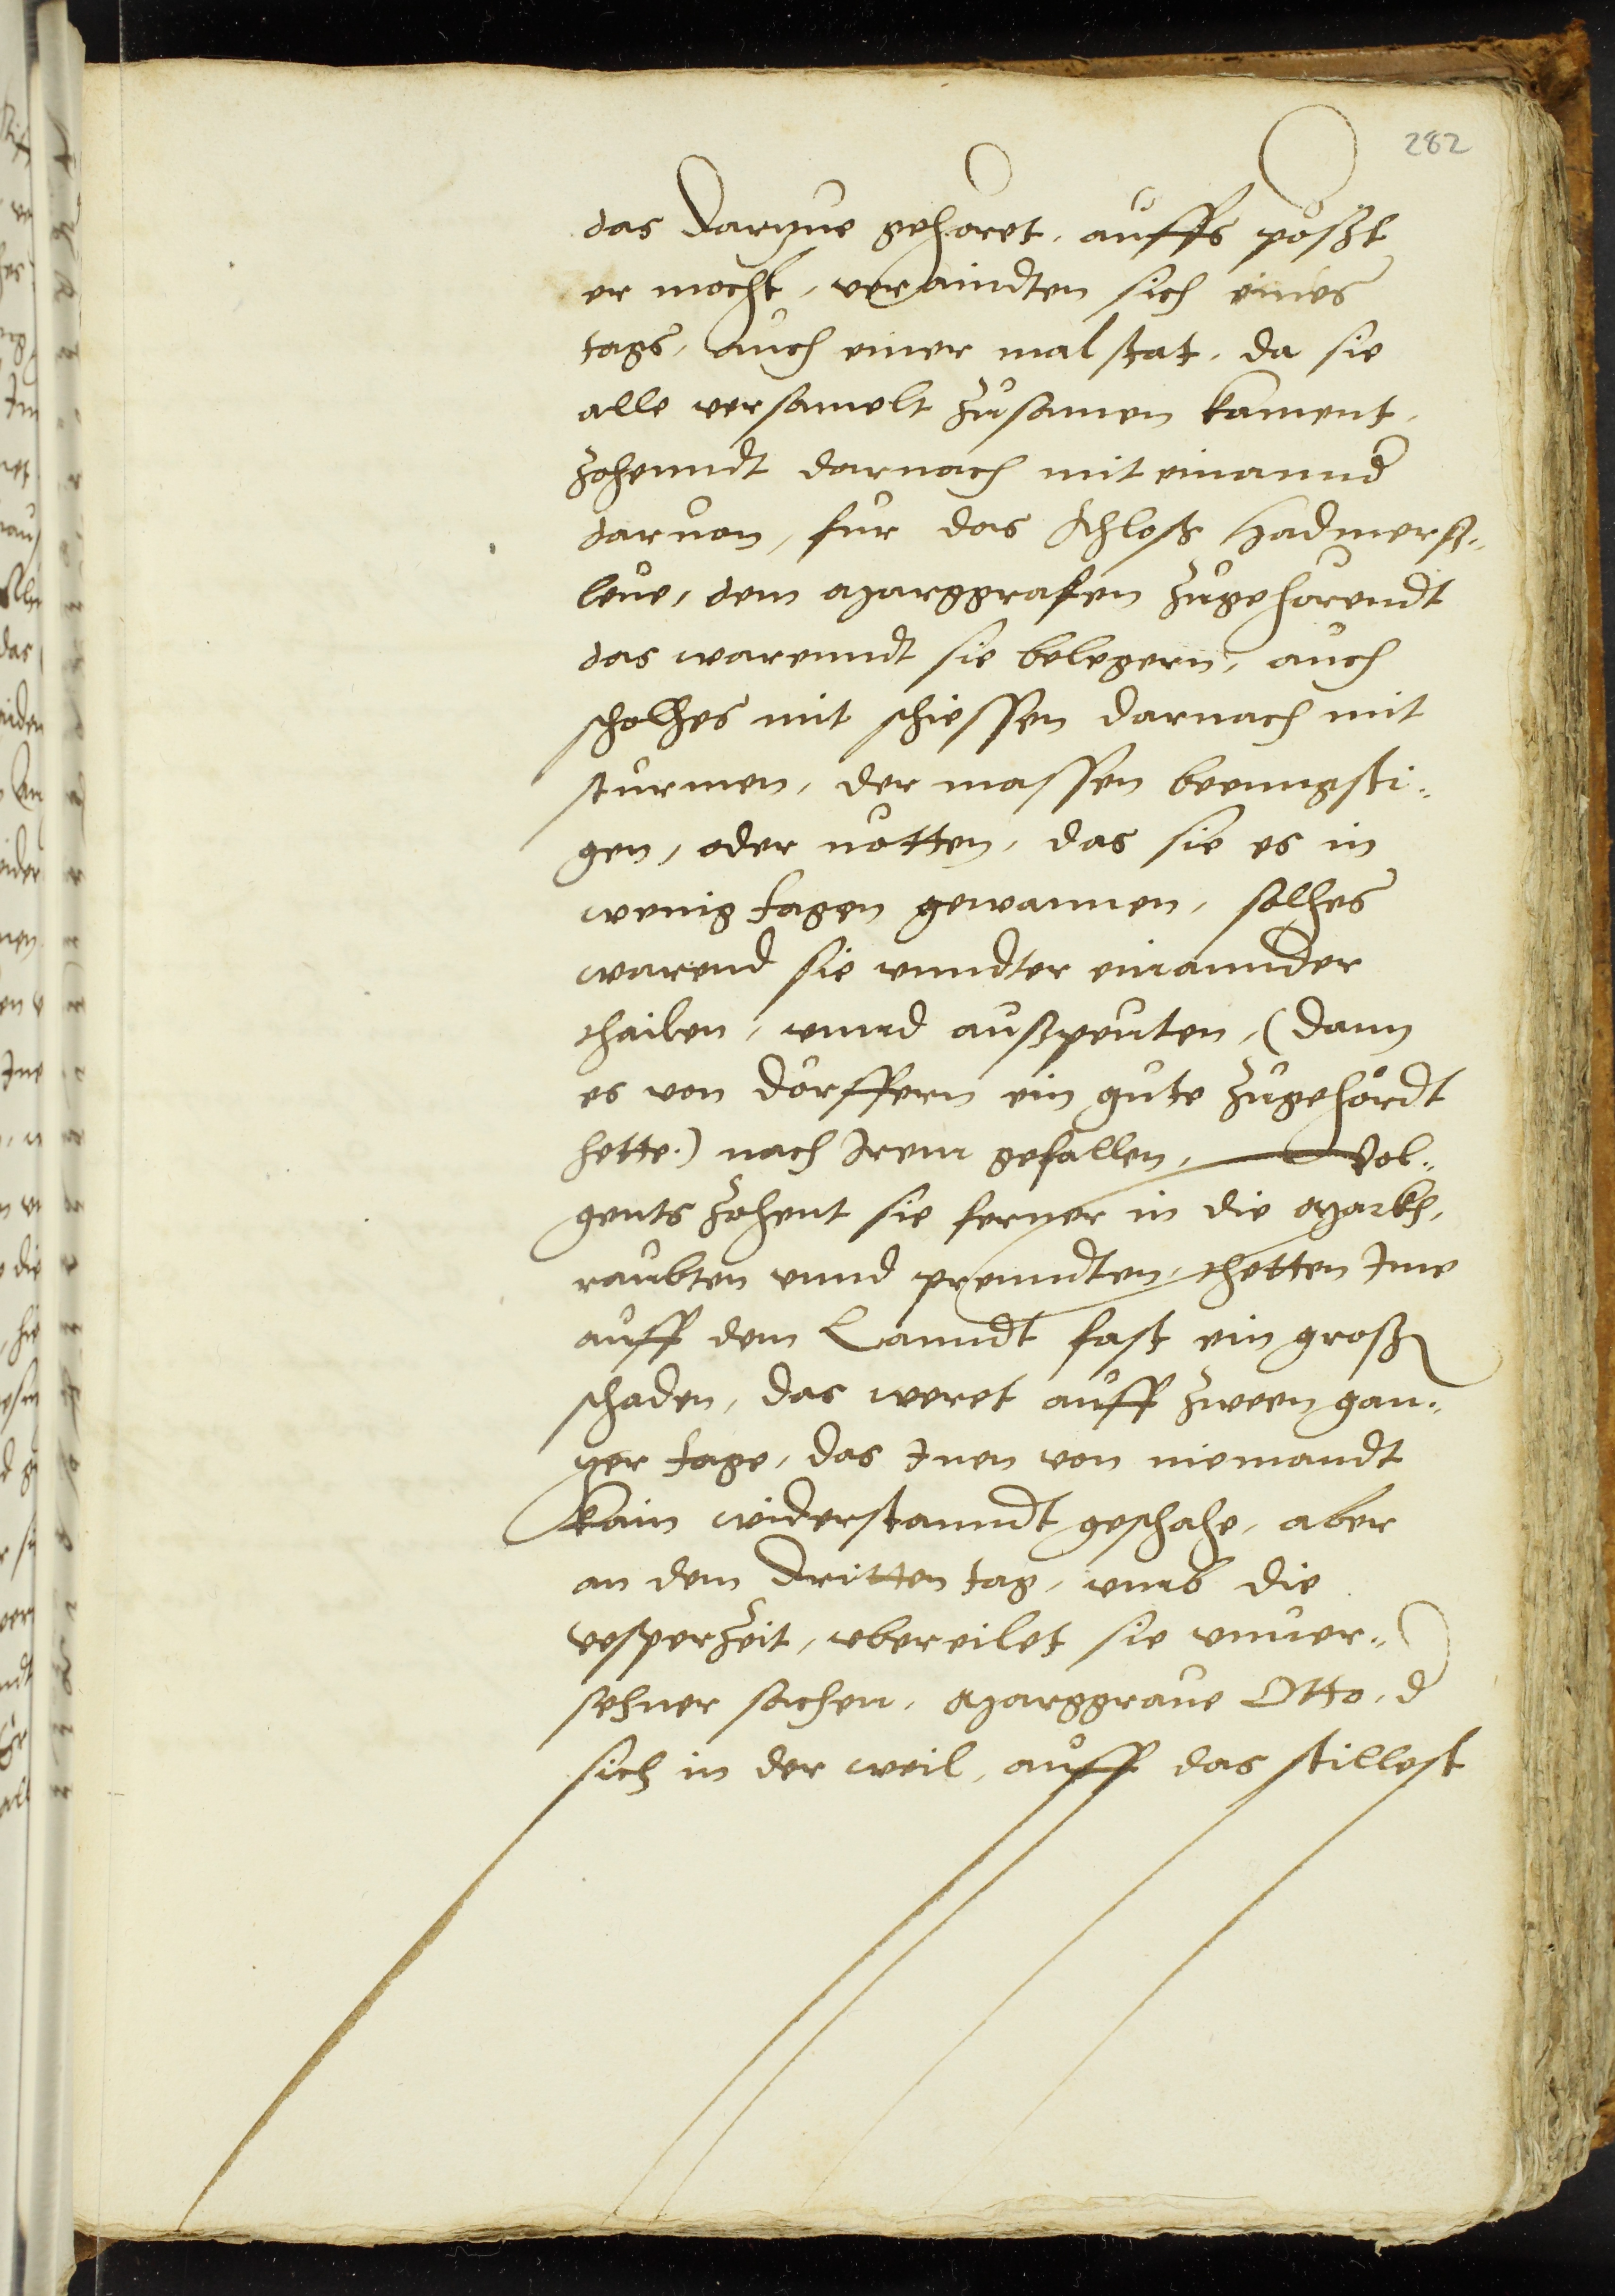 282
das darzue gehoret, auffs pößt
er mocht, veraindten sich eines
tags, auch einer malstat, da sie
alle versamelt zusamen kament,
zohenndt darnach mit einannd
daruon, fur das Schloß Hadmerß„
leue, dem Marggrafen zugehorendt
das warenndt sie belegern, auch
scholhes mit schiessen darnach mit
sturmen, der massen beenngsti„
gen, oder notten, das sie es in
wenig tagen gewannen, solhes
warend sie vnndter einannder
thailen, vnnd außpeuten, (dann
es von dörffern ein gute zugehördt
hette.) nach Irem gefallen, Vol„
gents zohent sie ferner in die Markh,
raubten vnnd prenndten, thetten Ime
auff dem Lanndt fast ein groß
schaden, das weret auff zween gan„
zer tage, das Inen von niemandt
kain widerstanndt geschahe, aber
an dem dritten tag, vmb die
vesperzeit, vbereilet sie vnuer„
sehner sachen, Marggraue Otto, d
sich in der weil, auff das stillest